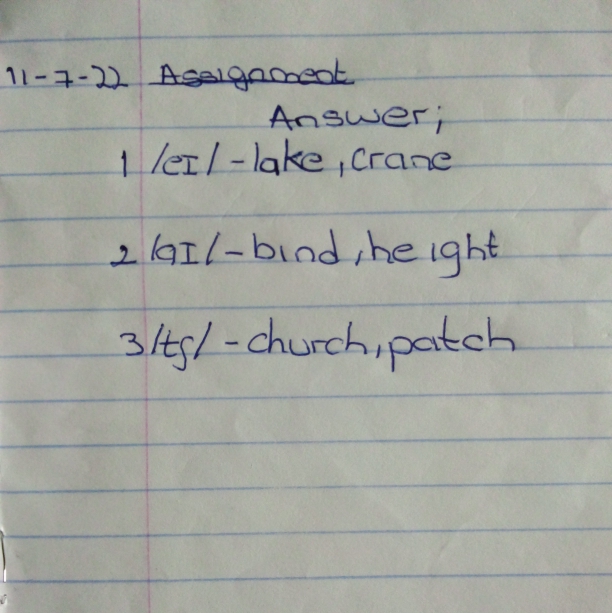 11-7-22 Assignment
Answer;
1 /eI/-lake, crane
2 /aI/-bind, height
3 /tʃ/-church, patch